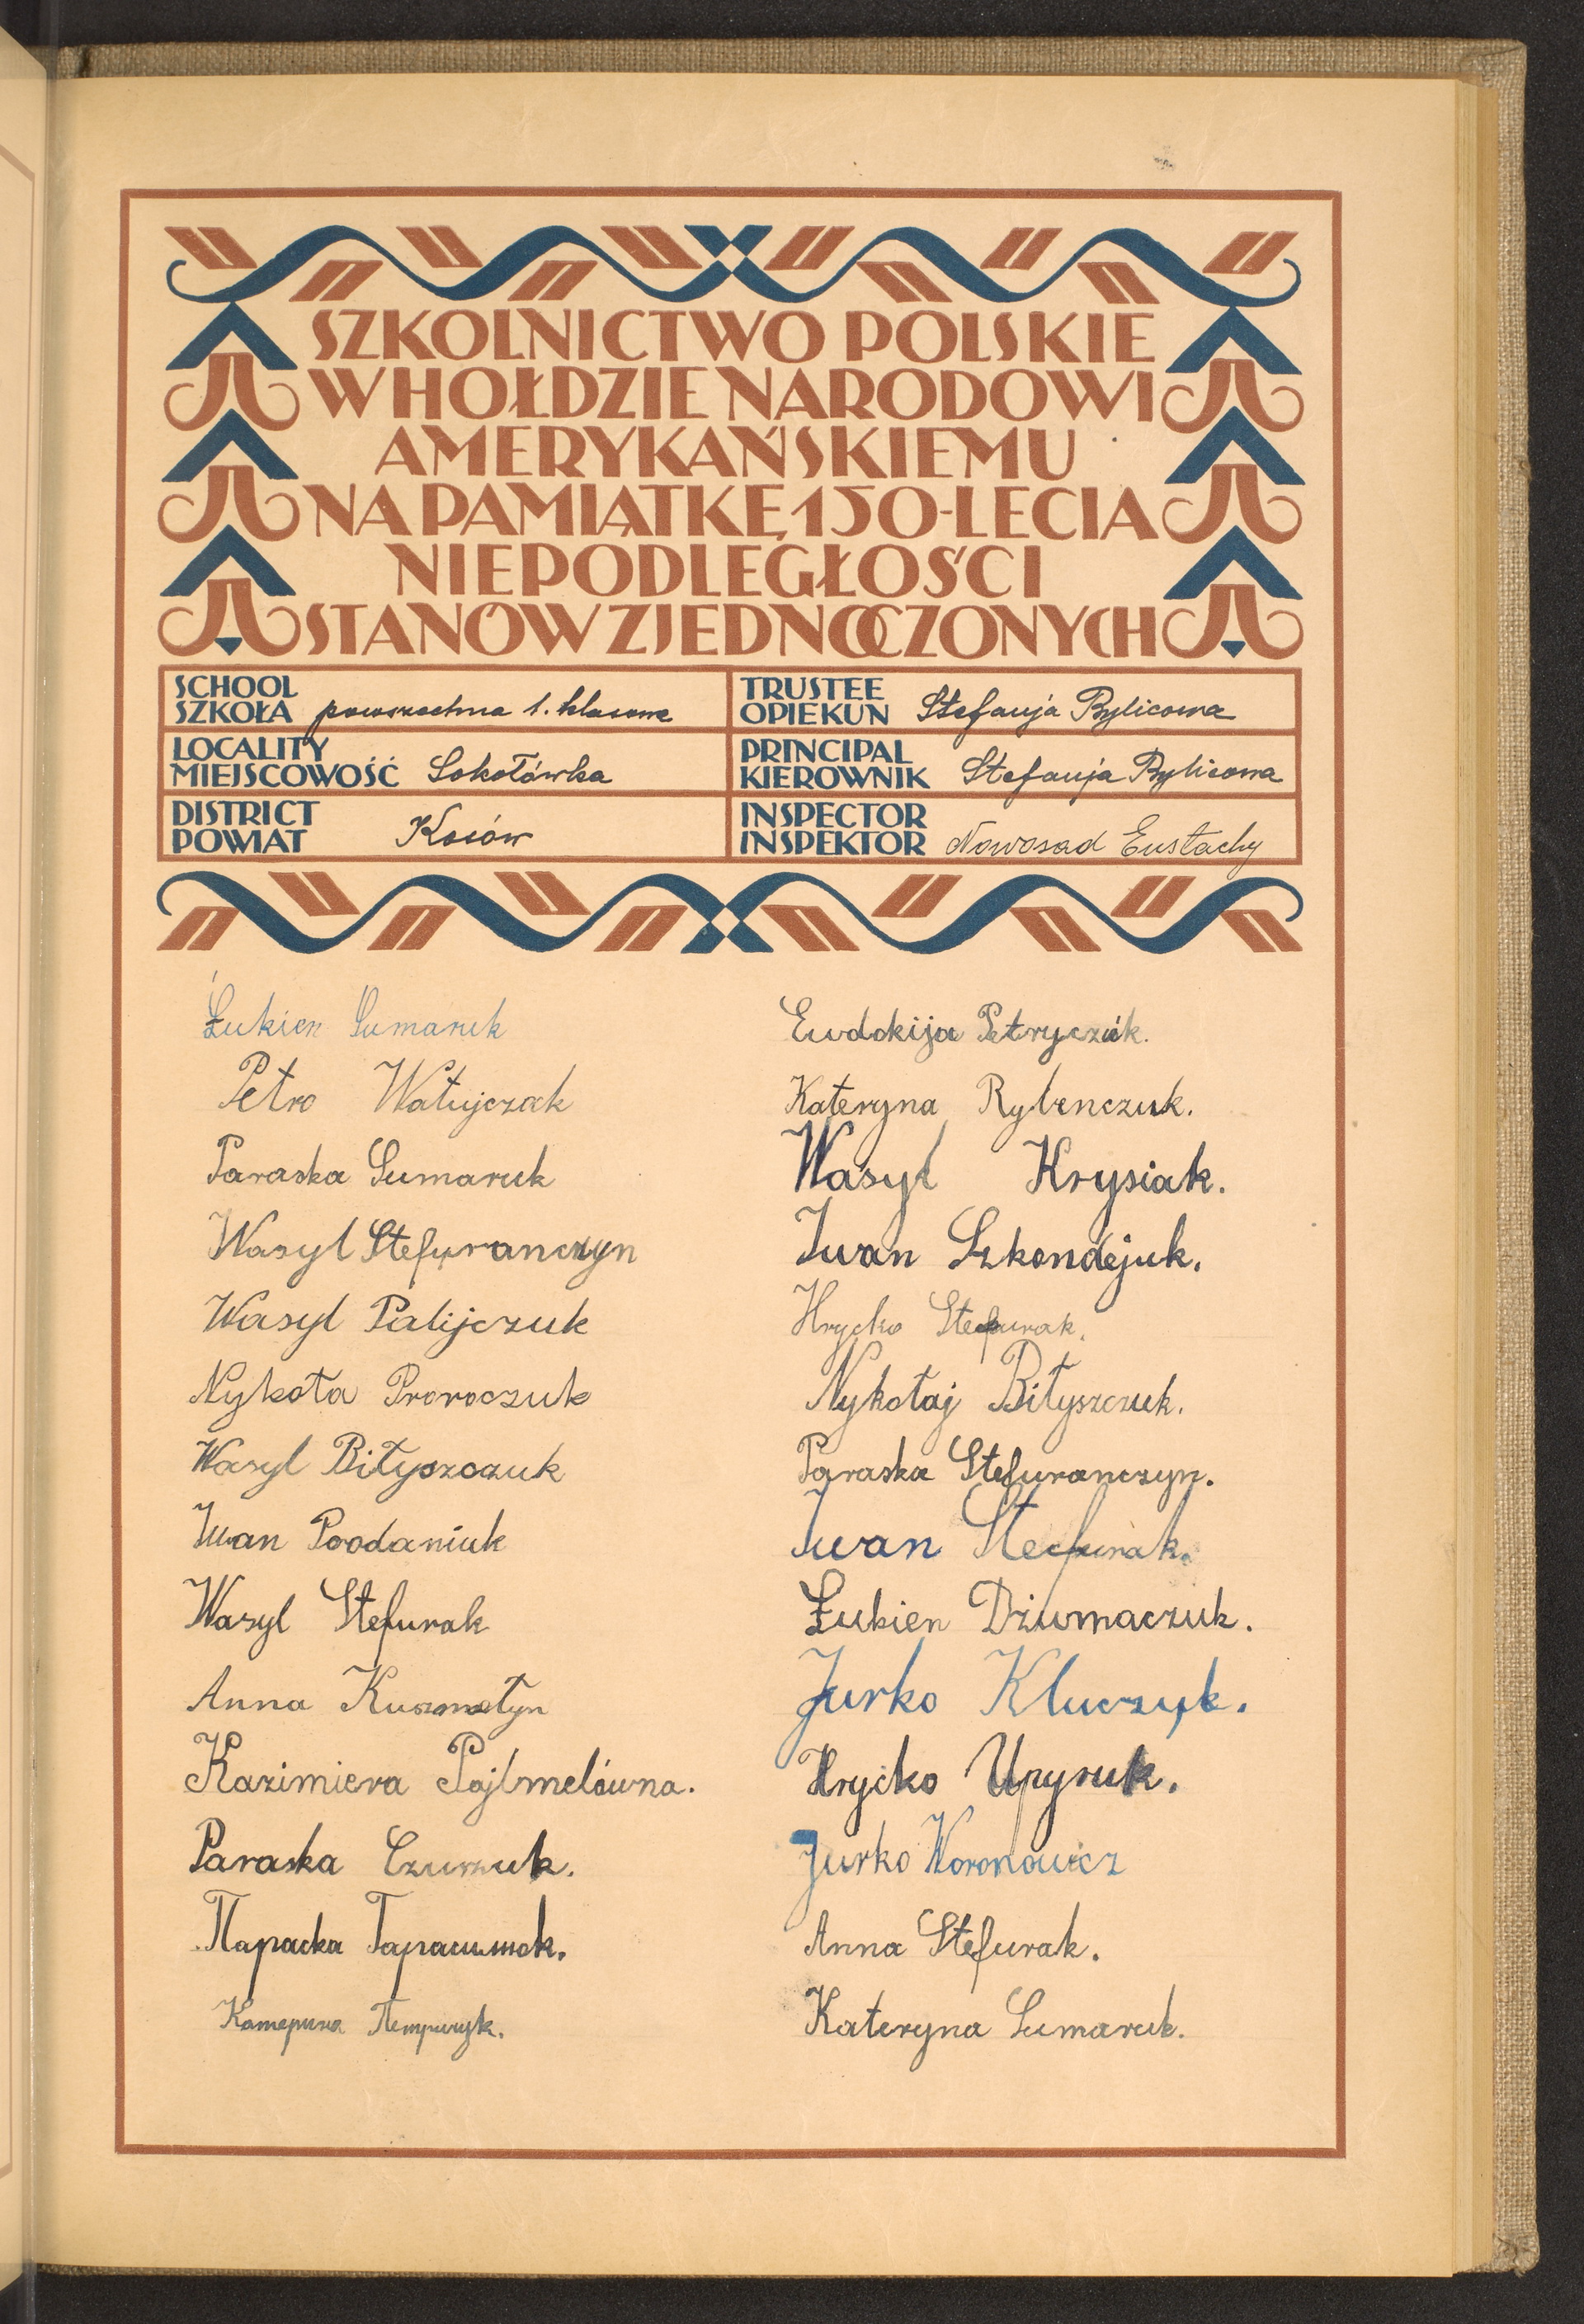 SZKOLNICTWO POLSKIE
W HOŁDZIE NARODOWI
AMERYKAŃSKIEMU
NA PAMIĄTKĘ 150-LECIA
NIEPODLEGŁOŚCI
STANÓW ZJEDNOCZONYCH
SCHOOL
SZKOŁA powszechna 1. klasowa
LOCALITY
MIEJSCOWOŚĆ Sokołówka
DISTRICT
POWIAT Kosów
TRUSTEE
OPIEKUN Stefanja Bylicowa
PRINCIPAL
KIEROWNIK Stefanja Bylicowa
INSPECTOR
INSPEKTOR Nowosad Eustachy
Łukien Sumaruk
Petro Watujczak
Paraska Sumaruk
Wasyl Stefuranczyn
Wasyl Palijczuk
Nykoła Proroczuk
Wasyl Biłyszczuk
Iwan Poodaniuk
Wasyl Stefurak
Anna
Kazimiera Pajlmelówna.
Paraska Czurzuk.
Параска
Катерина Петричук.
Ewdokija Petryczuk.
Kateryna Rybenczuk.
Wasyl Krysiak.
Iwan Szkondejuk.
Hrycko Stefurak.
Nykołaj Biłyszczuk.
Paraska Stefuranczyn.
Iwan Stefurak.
Łukien Dżumaczuk.
Jurko Kluczuk.
Hrycko Upyruk.
Jurko Woronowicz
Anna Stefurak.
Kateryna Sumaruk.